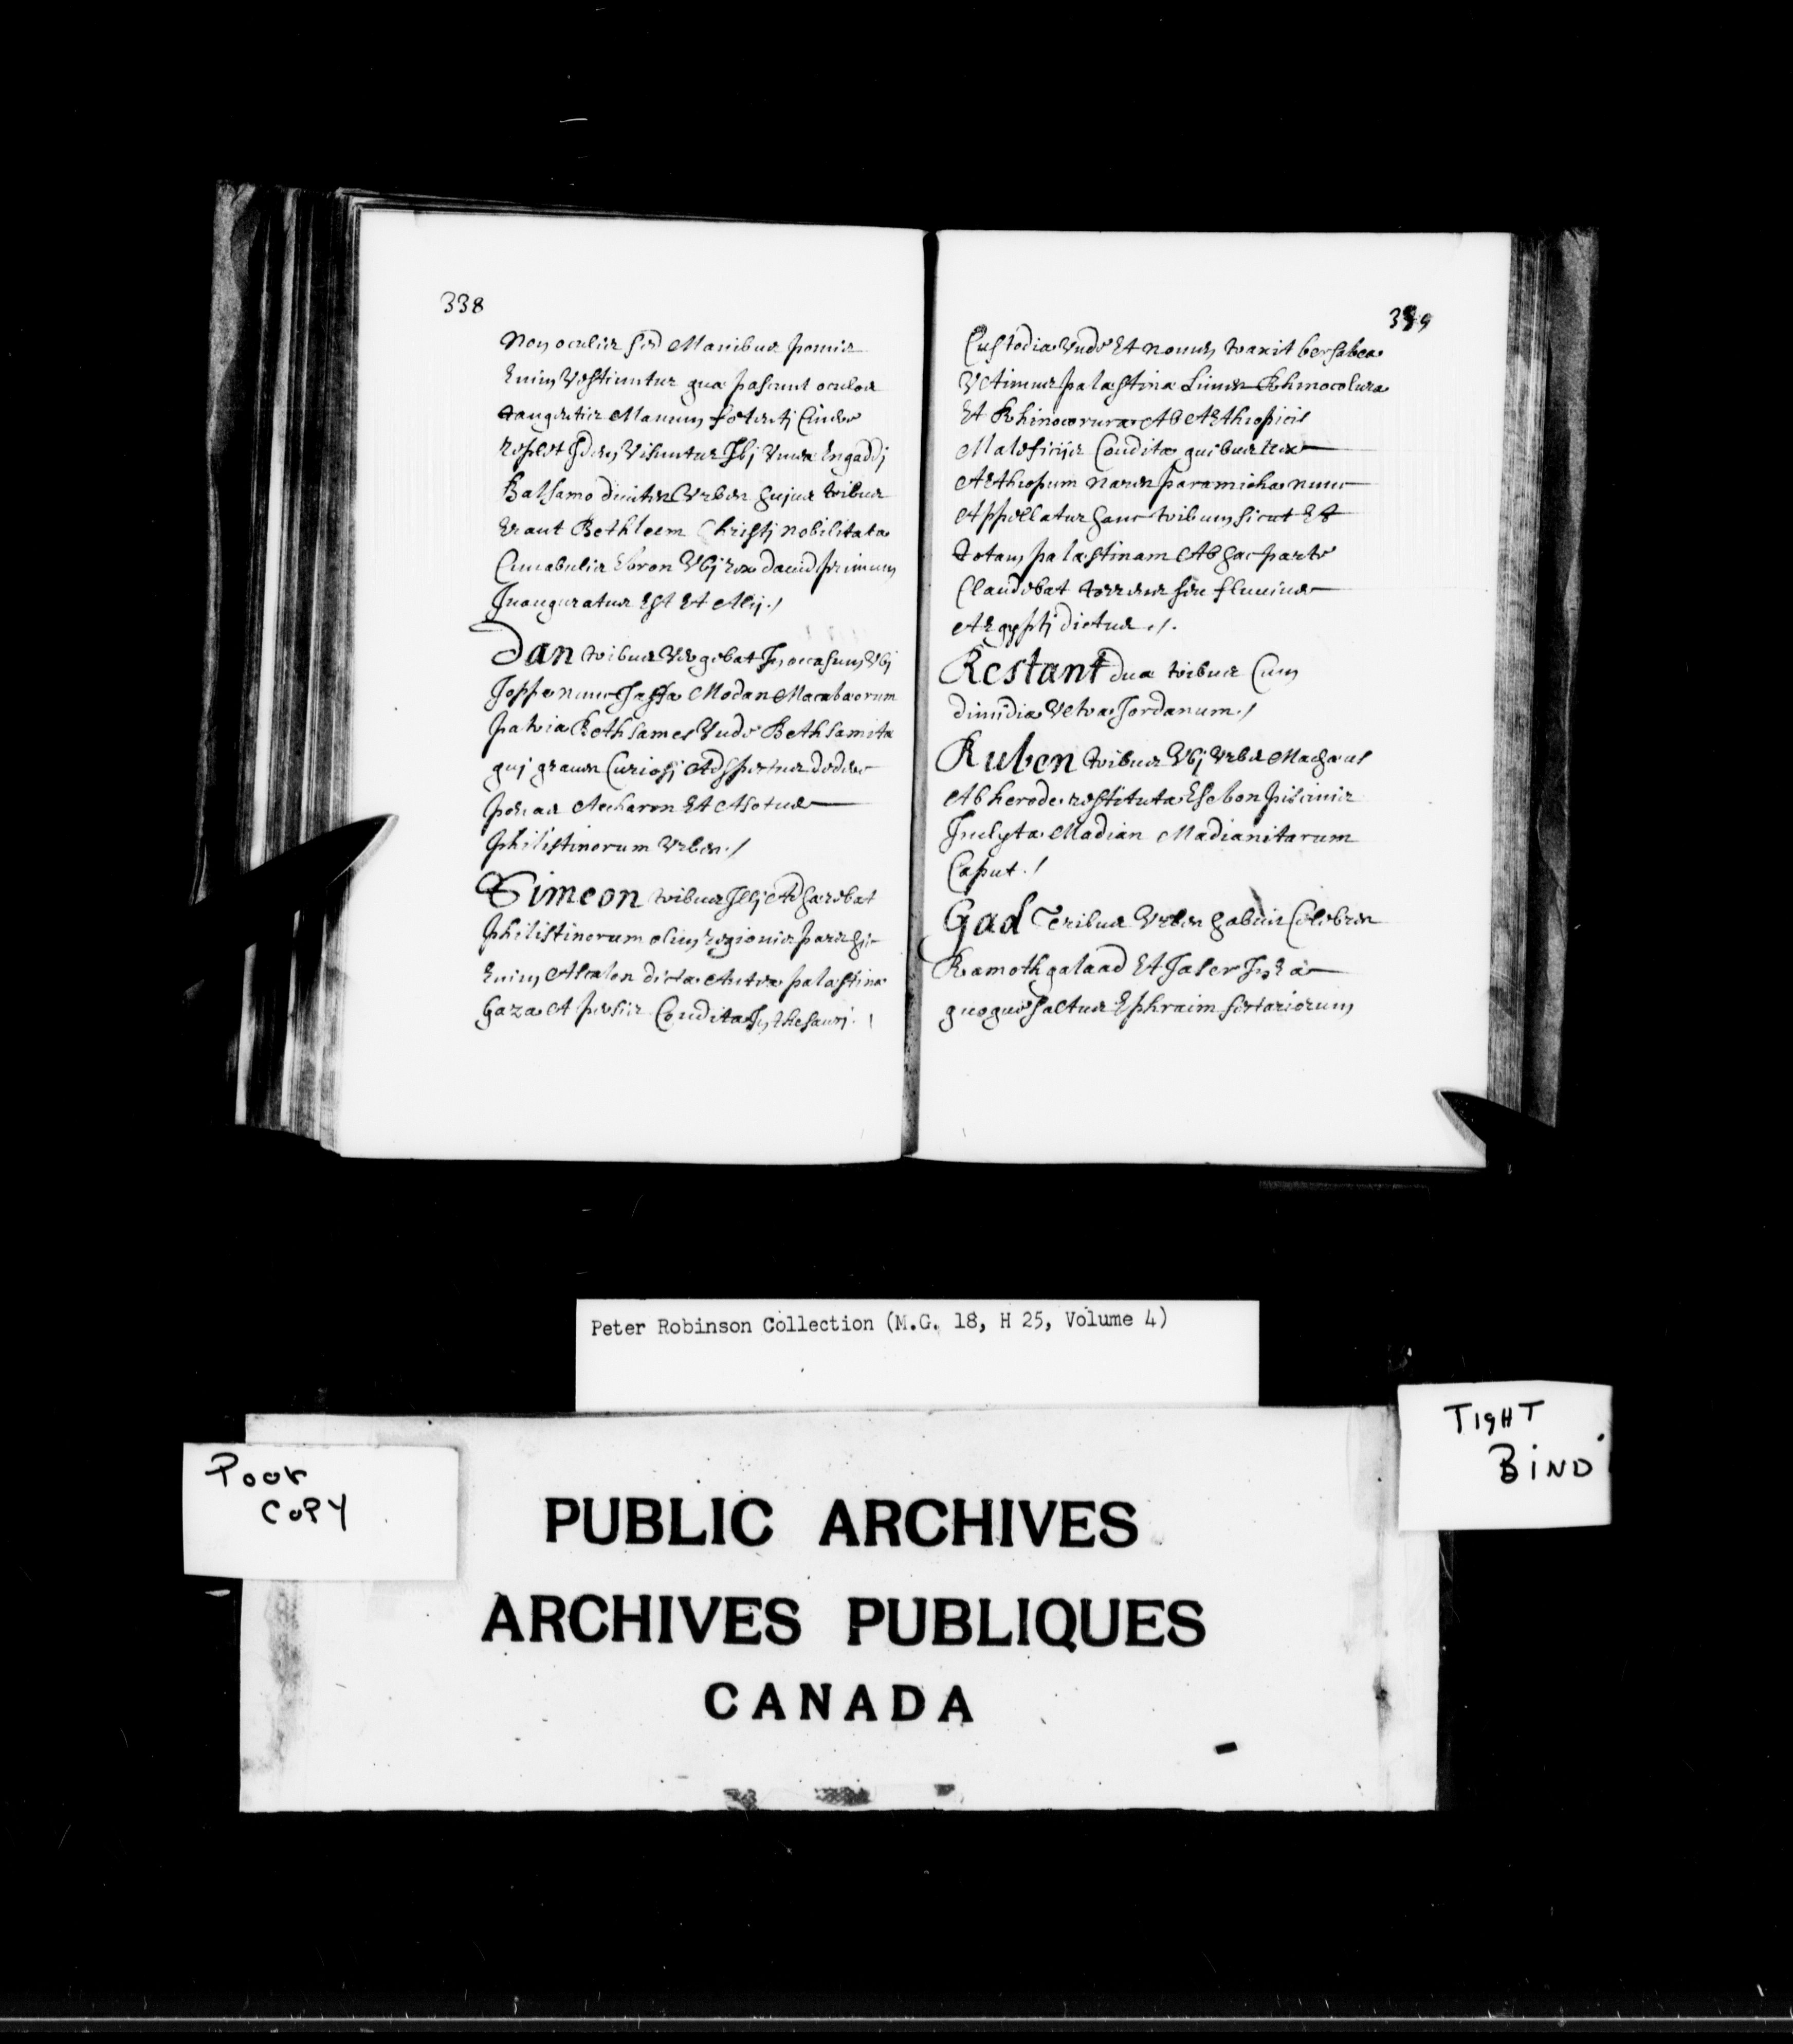 338
Non oculis sed Manibus pomis
Enim Vestiuntur quæ pascunt oculos
tangentis Manum fœtenti Cinere
replet Iden Visuntur Ibi Vineæ Engaddi
Balsamo divites Urbes hujus tribus
Erant Bethleem Christi nobilitata
Cunabulis Ebron Ubj rex david primum
Inauguratus Est Et Alij ./
Dan tribus Vergebat In occasum Ubj
Joppe nunc Jaffa Modan Macabæorum
patria Bethsames Unde Bethsamitæ
quj graves Curiosj Adspectus dedere
pœnas Accharon Et Asotus
philistinorum Urbes ./
Simeon tribus Illj Adhærebat
philistinorum olim regionis pars hic
Enim Ascalon dicta Antra palæstina
Gaza A persis Condita In thesauri . /
339
Custodia Unde Et nomen traxit bersabea
Ultimus palæstinæ Limes Rhinocolura
Et Rhinocorura Ab Aethiopicis
Maleficiis Condita quibus rex
Aethiopum nares paramicha nunc
Appellatur hanc tribum sicut Et
totam palæstinam Ab hac parte
Claudebat torrens seu fluvius
Aegypti dictus ./.
Restant duæ tribus Cum
dimidia Ultra Jordanum ./
Ruben tribus Ubj Urbs Machærus
Ab herode restituta Esebon piscinis
Inclyta Madian Madianitarum
Caput . /
Gad Teribus Urbes habuit Celebres
Ramoth galaad Et Jaser In Ea
quoque saltus Ephraim sertariorum
Peter Robinson Collection (M.G. 18, H 25, Volume 4)
Poor
Copy
TIGHT
BIND
PUBLIC ARCHIVES
ARCHIVES PUBLIQUES
CANADA